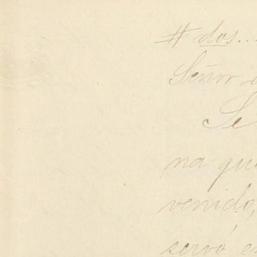 # dos...
Señor
Se
na que
venido,
servó